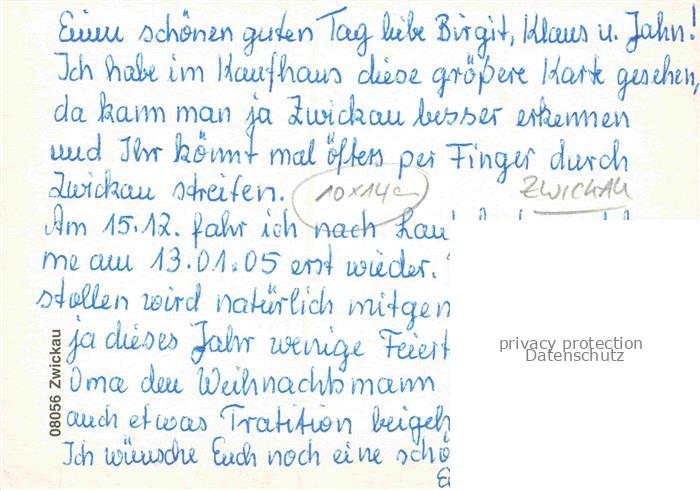 Einen schönen guten Tag liebe Birgit, Klaus u. Jahn!
Ich habe im Kaufhaus diese größere Karte gesehen,
da kann man ja Zwickau besser erkennen
und Ihr könnt mal öfters per Finger durch
Zwickau streifen.
10x14cm
ZWICKAU
Am 15.12. fahr ich nach
me am 13.01.05 erst wieder.
stollen wird natürlich mitgen
ja dieses Jahr wenige Feiert
Oma den Weihnachtsmann
auch etwas Tratition beigeb
Ich wünsche Euch noch eine schö
08056 Zwickau
privacy protection
Datenschutz